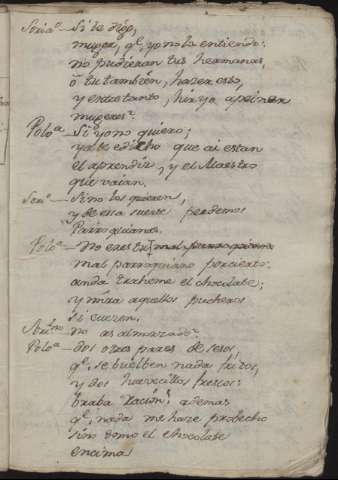 Soria.o — Si te digo,
muger, q.e yo no lo entiendo:
no pudieran tus hermanas,
ò tu tambien, hazer esto,
y entretanto, hir yo a
mugeres?
Polo.a — Si yo no quiero;
ya te edicho que ai estan
el aprendiz, y el Maestro
que vaian.
Sor.o — Si no los quieren,
y de esa suerte perdemos
Parroquianos.
Polo.a — No eres tu mal parroquiano
mal parroquiano por cierto:
anda traheme el chocolate;
y mira aquellos pucheros
si cuezen.
Sor.no no as almorzado?
Polo.a — dos o tres pares de sesos,
q.e se buelben nada fritos,
y dos huevecitos frescos:
braba racion! ademas
q.e nada me haze probecho
sino tomo el chocolate
encima